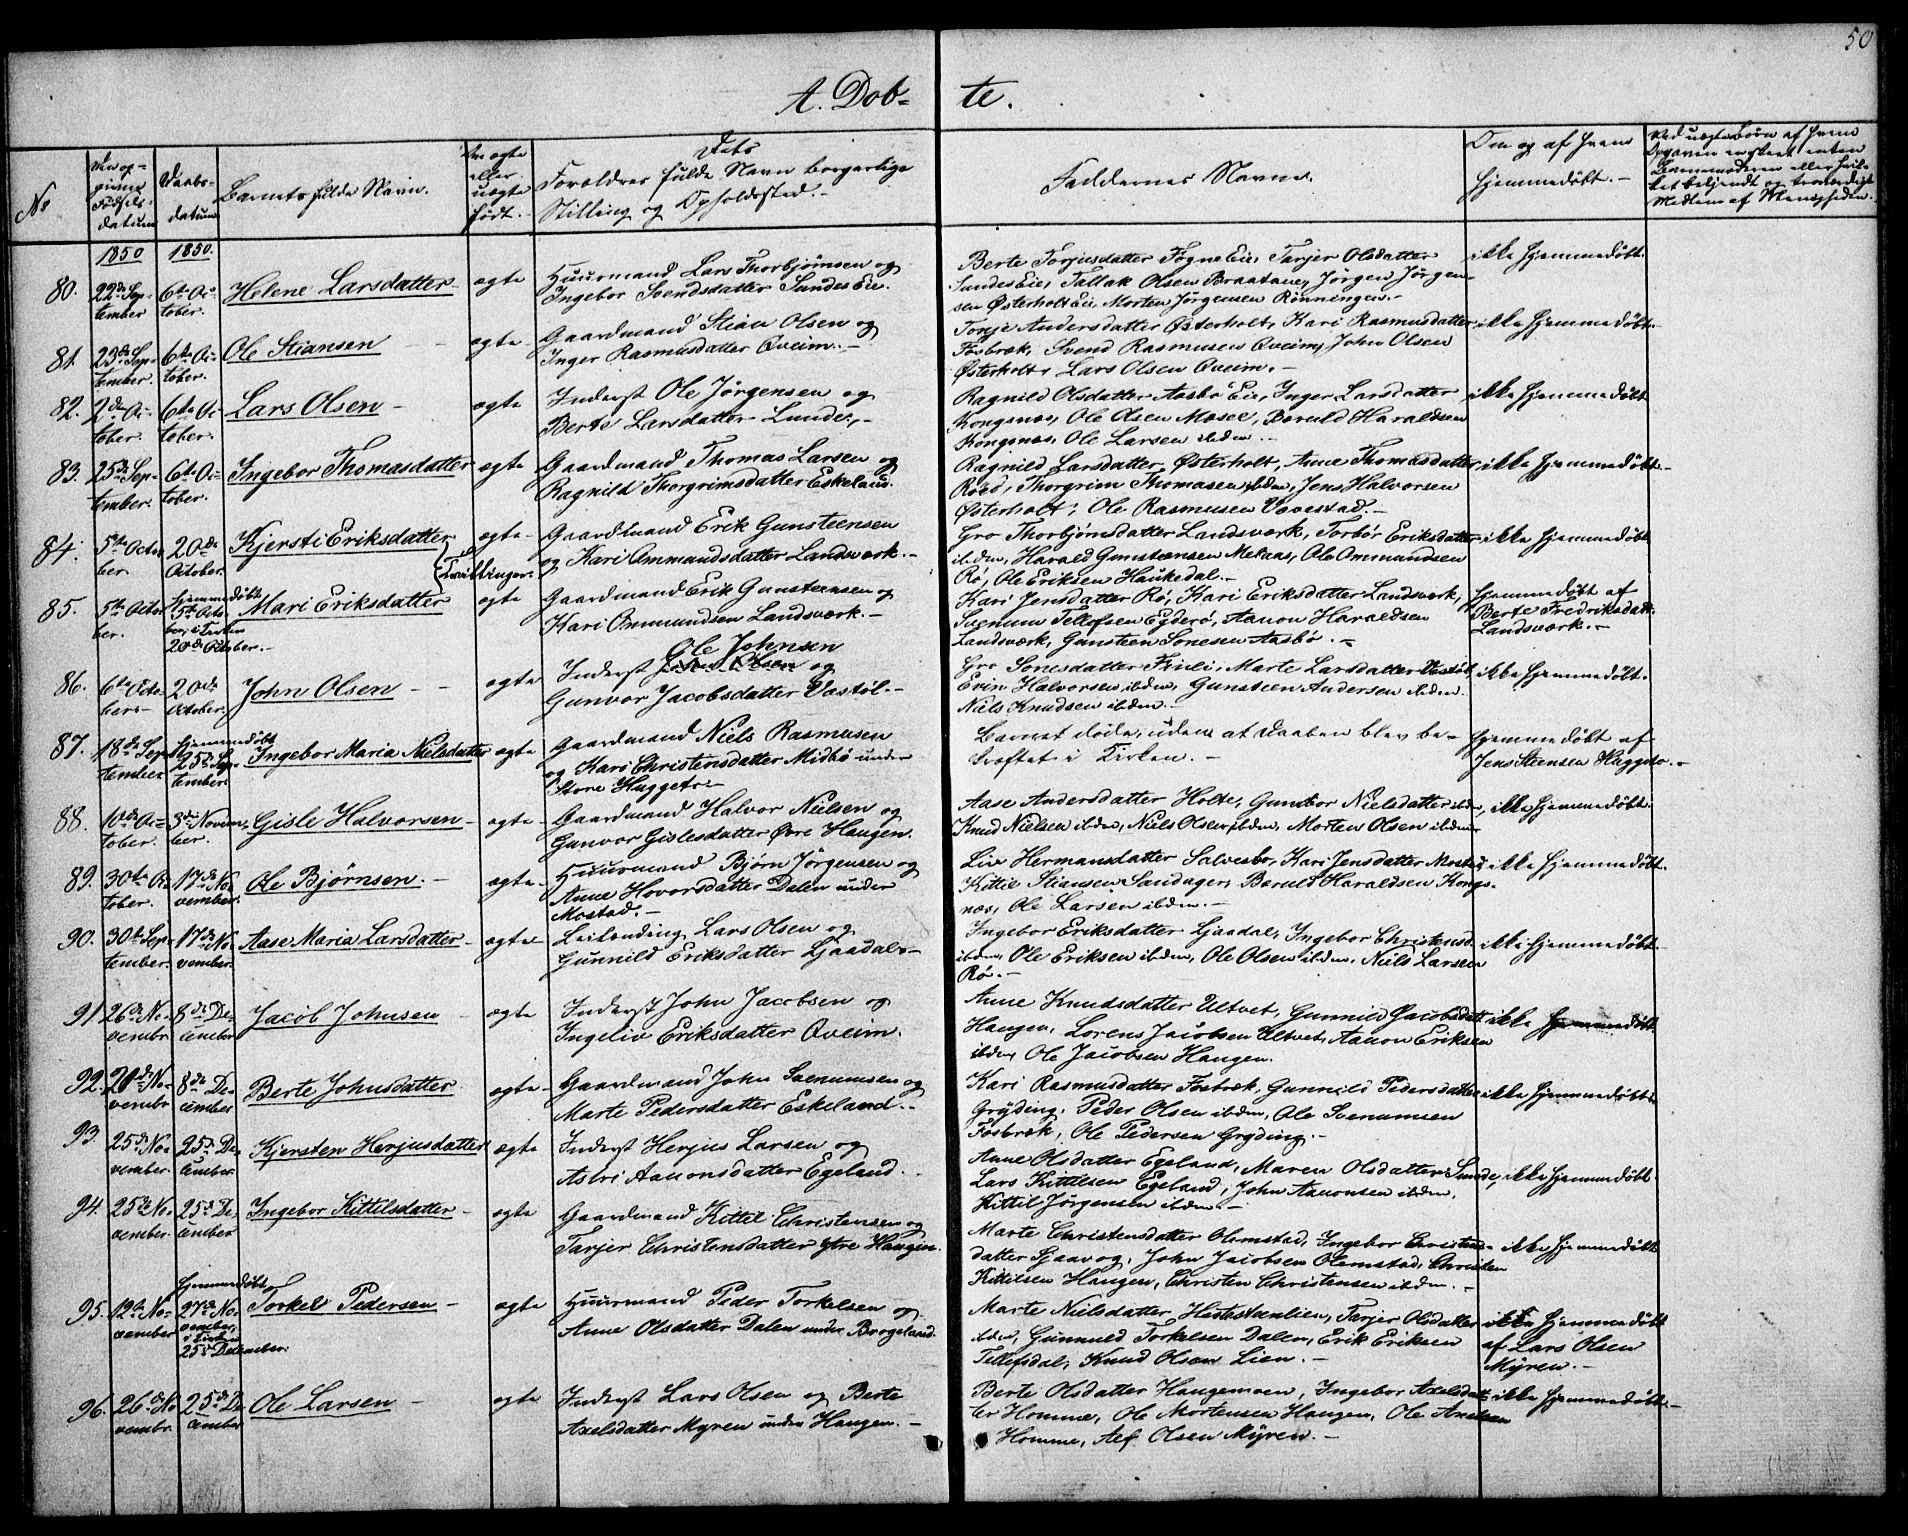 50
A. Døb- te.
No
Den op-
givne
Fødsels-
datum
Daabs-
datum
Barnets fulde Navn.
Om ægte
eller
uægte
født.
Dets
Forældres fulde Navn borgerlige
Stilling og Opholdssted.
Faddernes Navne.
Om og af hvem
hjemmedøbt.
Ved uægte Børn af hvem
Opgaven er skeet enten
Barnemoderen eller hvil-
ket bekjendt og troværdigt
Medlem af Menigheden.
1850 1850.
80. 22de Sep-
tember 6te Oc-
tober. Helene Larsdatter ægte Huusmand Lars Thorbjørnsen og
Ingebor Svendsdatter Sundes Eie.
Berte Torjusdatter Fogne Eie, Tarjer Olsdatter
Sundes Eie, Tallak Olsen Braatane, Jörgen Jörgen-
sen Østerholt Eie, Morten Jörgensen Rönningen.-
ikke hjemmedøbt.
81. 23de Sep-
tember. 6te Oc-
tober. Ole Stiansen ægte. Gaardmand Stian Olsen og
Inger Rasmusdatter Qveim.-
Torje Andersdatter Østerholt, Kari Rasmusdatter
Fosbræk, Svend Rasmusen Qveim, John Olsen
Østerholt, Lars Olsen Qveim.-
ikke hjemmedøbt.
82. 2den Oc-
tober. 6te Oc-
tober. Lars Olsen ægte Inderst Ole Jørgensen og
Berte Larsdatter Lunde,-
Ragnild Olsdatter Aasbö Eie, Inger Larsdatter
Kongsnæs, Ole Olsen Moseé, Bæruld Haraldsen
Kongsnæs, Ole Larsen ibden.-
ikke hjemmedøbt
83. 25de Sep-
tember. 6te Oc-
tober. Ingebor Thomasdatter ægte Gaardmand Thomas Larsen og
Ragnild Thorgrimsdatter Eskeland.
Ragnild Larsdatter Østerholt, Anne Thomasdatter
Röed, Thorgrim Thomasen ibden, Jens Halvorsen
Østerholt, Ole Rasmusen Vævestad.-
ikke hjemmedøbt.-
84. 5te Octo-
ber. 20de
October. Kjersti Eriksdatter
(Tvillinger. ægte- Gaardmand Erik Gunsteensen
og Kari Ommundsdatter Landsværk.-
Gro Thorbjörnsdatter Landsværk, Torbör Eriksdatter
ibden, Harald Gunsteensen Melaas, Ole Ommundsen
Rö, Ole Eriksen Haukedal.-
ikke hjemmedøbt
85. 5te Octo-
ber. hjemmedøbt
5te Octo-
ber, i Kirken
20de October.- Mari Eriksdatter ægte Gaardmand Erik Gunsteensen og
Kari Ommundsen Landsværk.-
Kari Jensdatter Rö, Kari Eriksdatter Landsværk,
Svenum Tellefsen Eyderö, Aanon Haraldsen
Landsværk, Gunsteen Sonesen Aasbö.-
hjemmedøbt af
Berte Fredriksdatt.
Landsværk.-
86. 6te Octo-
ber.- 20de
October. John Olsen ægte Inderst Ole Johnsen
og
Gunvor Jacobsdatter Vastøl.-
Gro Sonesdatter Friili, Marte Larsdatter Vastøl,
Evin Halvorsen ibden, Gunsteen Andersen ibden.
Niels Knudsen ibden.-
ikke hjemmedøbt.
87. 18de Sep-
tember. hjemmedøbt
25de Sep-
tember. Ingebor Maria Nielsdatter ægte Gaardmand Niels Rasmusen
og Kari Christensdatter Midbö under
Store Huggeto.-
Barnet døde, uden at Daaben blev be-
kræftet i Kirken.-
hjemmedøbt af
Jens Steensen Huggeto.-
88. 10de Oc-
tober. 3de Novem-
ber. Gisle Halvorsen ægte- Gaardmand Halvor Nielsen og
Gunvor Gislesdatter Øvre Haugen.
Aase Andersdatter Holte, Gunvor Nielsdatter ibden,
Knud Nielsen ibden, Niels Olsen ibden, Morten Olsen ibden
ikke hjemmedøbt.
89. 30te Oc-
tober. 17de No-
vember. Ole Bjørnsen. ægte- Huusmand Bjørn Jörgensen og
Anne Hovorsdatter Dalen under
Mostad.-
Liv Hermansdatter Salvesbo, Kari Jensdatter Mostad
Kittil Stiansen Sandager, Bærulf Haraldsen Kongs-
næs, Ole Larsen ibden.-
ikke hjemmedøbt.
90. 30te Sep-
tember. 17de No-
vember. Aase Maria Larsdatter ægte Leilænding Lars Olsen og
Gunnild Eriksdatter Ljaadal.-
Ingebor Eriksdatter Ljaadal, Ingebor Christensd.
ibden, Ole Eriksen ibden, Ole Olsen ibden, Niels Larsen
Rö.-
ikke hjemmedøbt
91. 26de No-
vembr 8de De-
cember Jacob Johnsen ægte Inderst John Jacobsen og
Ingeliv Eriksdatter Qveim.
Anne Knudsdatter Ultvet, Gunnild Jacobsdatt
Haugen, Lorens Jacobsen Ultvet, Aanon Eriksen
ibden, Ole Jacobsen Haugen.
ikke hjemmedøbt.
92. 20de No-
vembr 8de De-
cember Berte Johnsdatter ægte- Gaardmand John Svenumsen og
Marte Pedersdatter Eskeland.-
Kari Rasmusdatter Fosbræk, Gunnild Pedersdatter
Gryding, Peder Olsen ibden, Ole Svenumsen
Fosbræk, Ole Pedersen Gryding.-
ikke hjemmedøbt.
93. 25de No-
vember. 25de De-
cember. Kjersten Herjusdatter ægte Inderst Herjus Larsen og
Astri Aanonsdatter Egeland.
Anne Olsdatter Egeland, Maren Olsdatter Lunde,
Lars Kittelsen Egeland, John Aanonsen ibden,
Kittil Jørgensen ibden.-
ikke hjemmedøbt.
94. 25de No-
vember. 25de De-
cember Ingebor Kittilsdatter ægte Gaardmand Kittil Christensen og
Tarjer Christensdatter Ytre Haugen.
Marte Christensdatter Olimstad, Ingebor Christens-
datter Sjaavog, John Jacobsen Olimstad, Christen
Kittilsen Haugen, Christen Christensen ibden.-
ikke hjemmedøbt
95. 12te No-
vember hjemmedøbt
27de No-
vember,
i Kirken
25de December. Torkel Pedersen ægte Huusmand Peder Torkelsen og
Anne Olsdatter Dalen under Bergeland.
Marte Nielsdatter, Tarjer Olsdatter
ibden, Gunnuld Torkelsen Dalen, Erik Eriksen
Tellefsdal, Knud Olsen Lien.-
ikke hjemmedøbt
af Lars Olsen
Myren.-
96. 26de No-
vembr. 25de De-
cember Ole Larsen ægte Inderst Lars Olsen og Berte
Axelsdatter Myren under Haugen.-
Berte Olsdatter Haugemoen, Ingebor Axelsdat-
ter Homme, Ole Mortensen Haugen, Ole Axelsen
Homme, Alf Olsen Myren.-
ikke hjemmedøbt.-